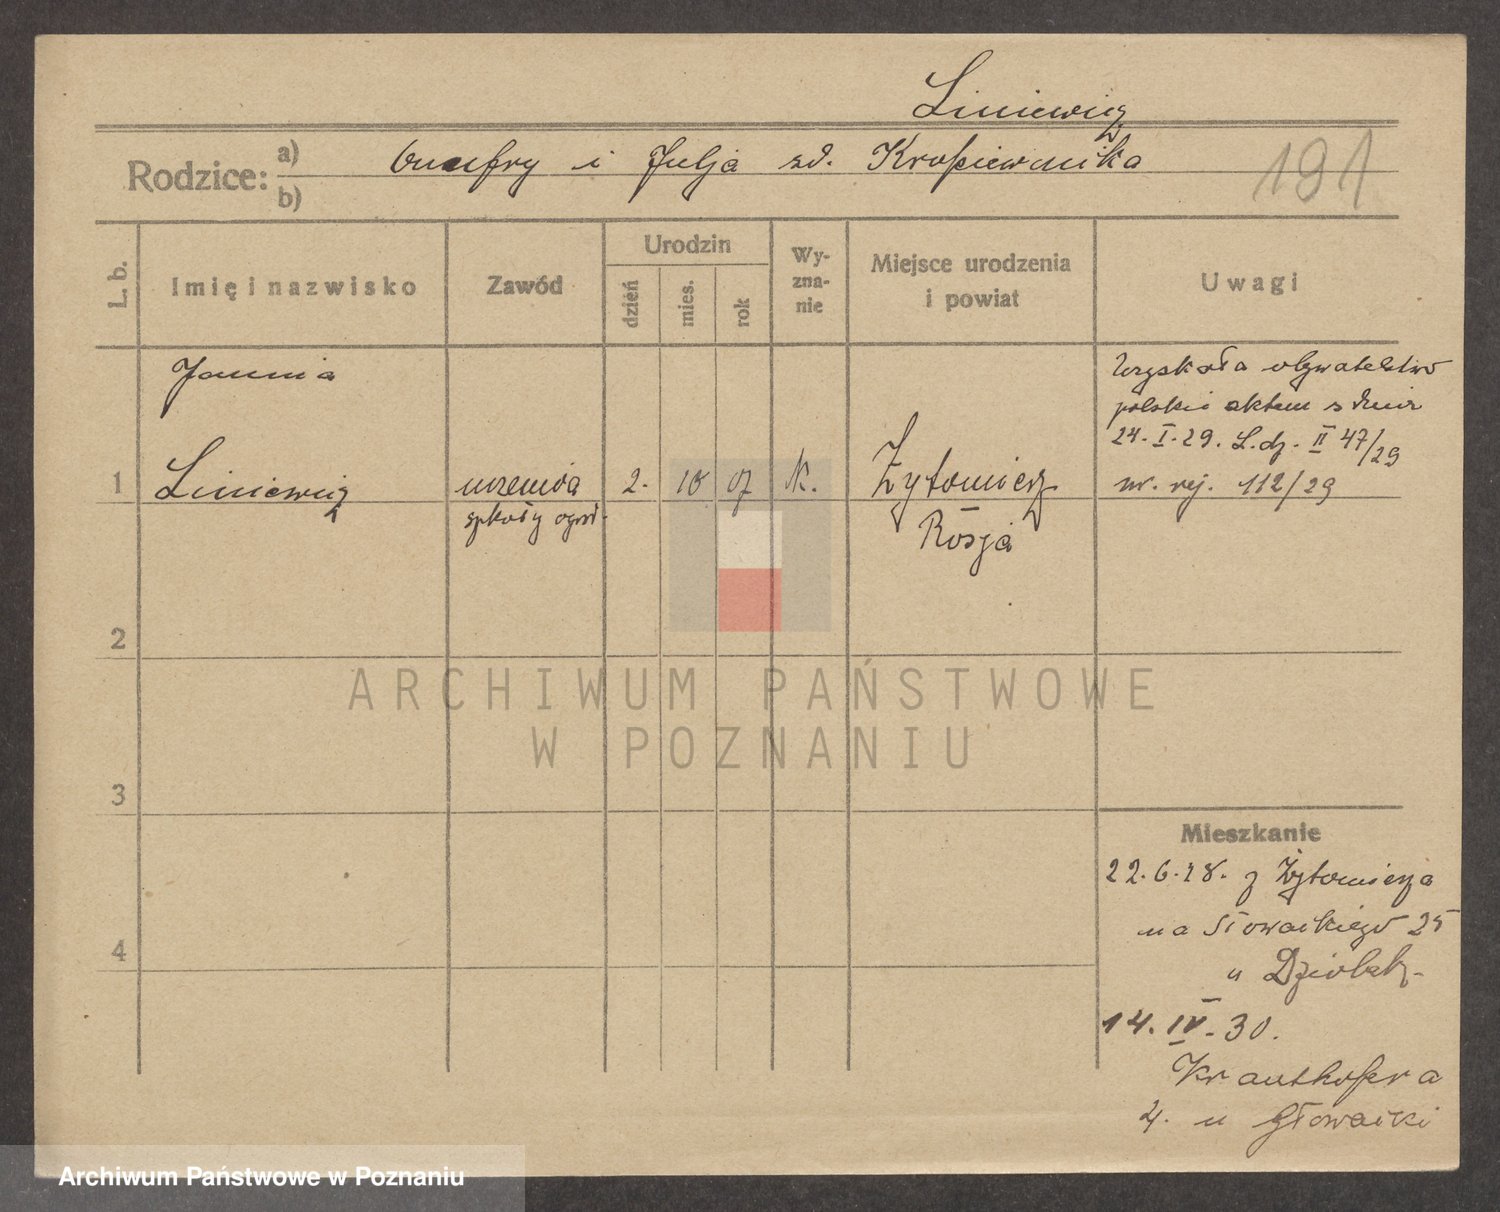 Liniewicz
Rodzice: a) Onufry i Julja zd. Kropiewnika
b)
191
L. b.
Imię i nazwisko
Zawód
Urodzin
dzień
mies.
rok
Wy-
zna-
nie
Miejsce urodzenia
i powiat
Uwagi
Janina
1 Liniewicz
uczenica
szkoły ogrod.
2. 10 07 k.
Żytomierz
Rosja
Uzyskała obywatelstwo
polskie aktem z dnia
24.I.29. L.dz. II 47/29
nr. rej. 112/29
2
3
4
ARCHIWUM PAŃSTWOWE
W POZNANIU
Mieszkanie
22.6.28. z Żytomierza
na Słowackiego 25
u
14.IV.30.
Krauthofera
4. u Głowacki
Archiwum Państwowe w Poznaniu